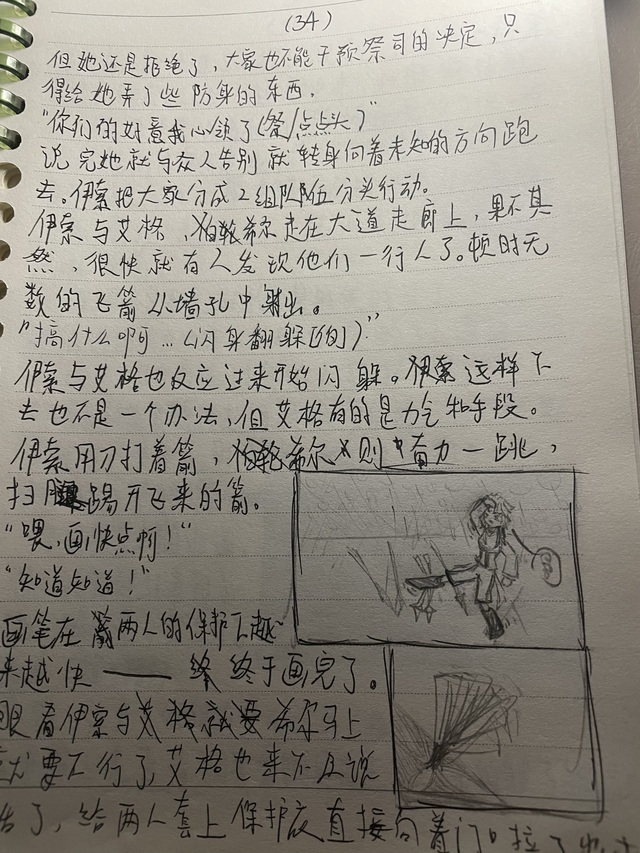 (34)
但她还是拒绝了，大家也不能干预祭司的决定，只
得给她弄了些防身的东西。
"你们的好意我心领了(祭/点点头)"
说完她就与众人告别就转身向着未知的方向跑
去。伊索把大家分成2组队伍分头行动。
伊索与艾格、希尔走在大道走廊上，果不其
然，很快就有人发现他们一行人了。顿时无
数的飞箭从墙孔中射出。
"搞什么啊…(闪身翻躲)"
伊索与艾格也反应过来开始闪躲。这样下
去也不是一个办法，但艾格有的是力气和手段。
伊索用刀打着箭，希尔则奋力一跳，
扫踢开飞来的箭。
"喂，画快点啊！"
"知道知道！"
画笔在两人的保护下越
来越快——终于画完了。
眼看伊索与希尔马上
就要不行了，艾格也来不及说
了，给两人套上保护直接向着门口